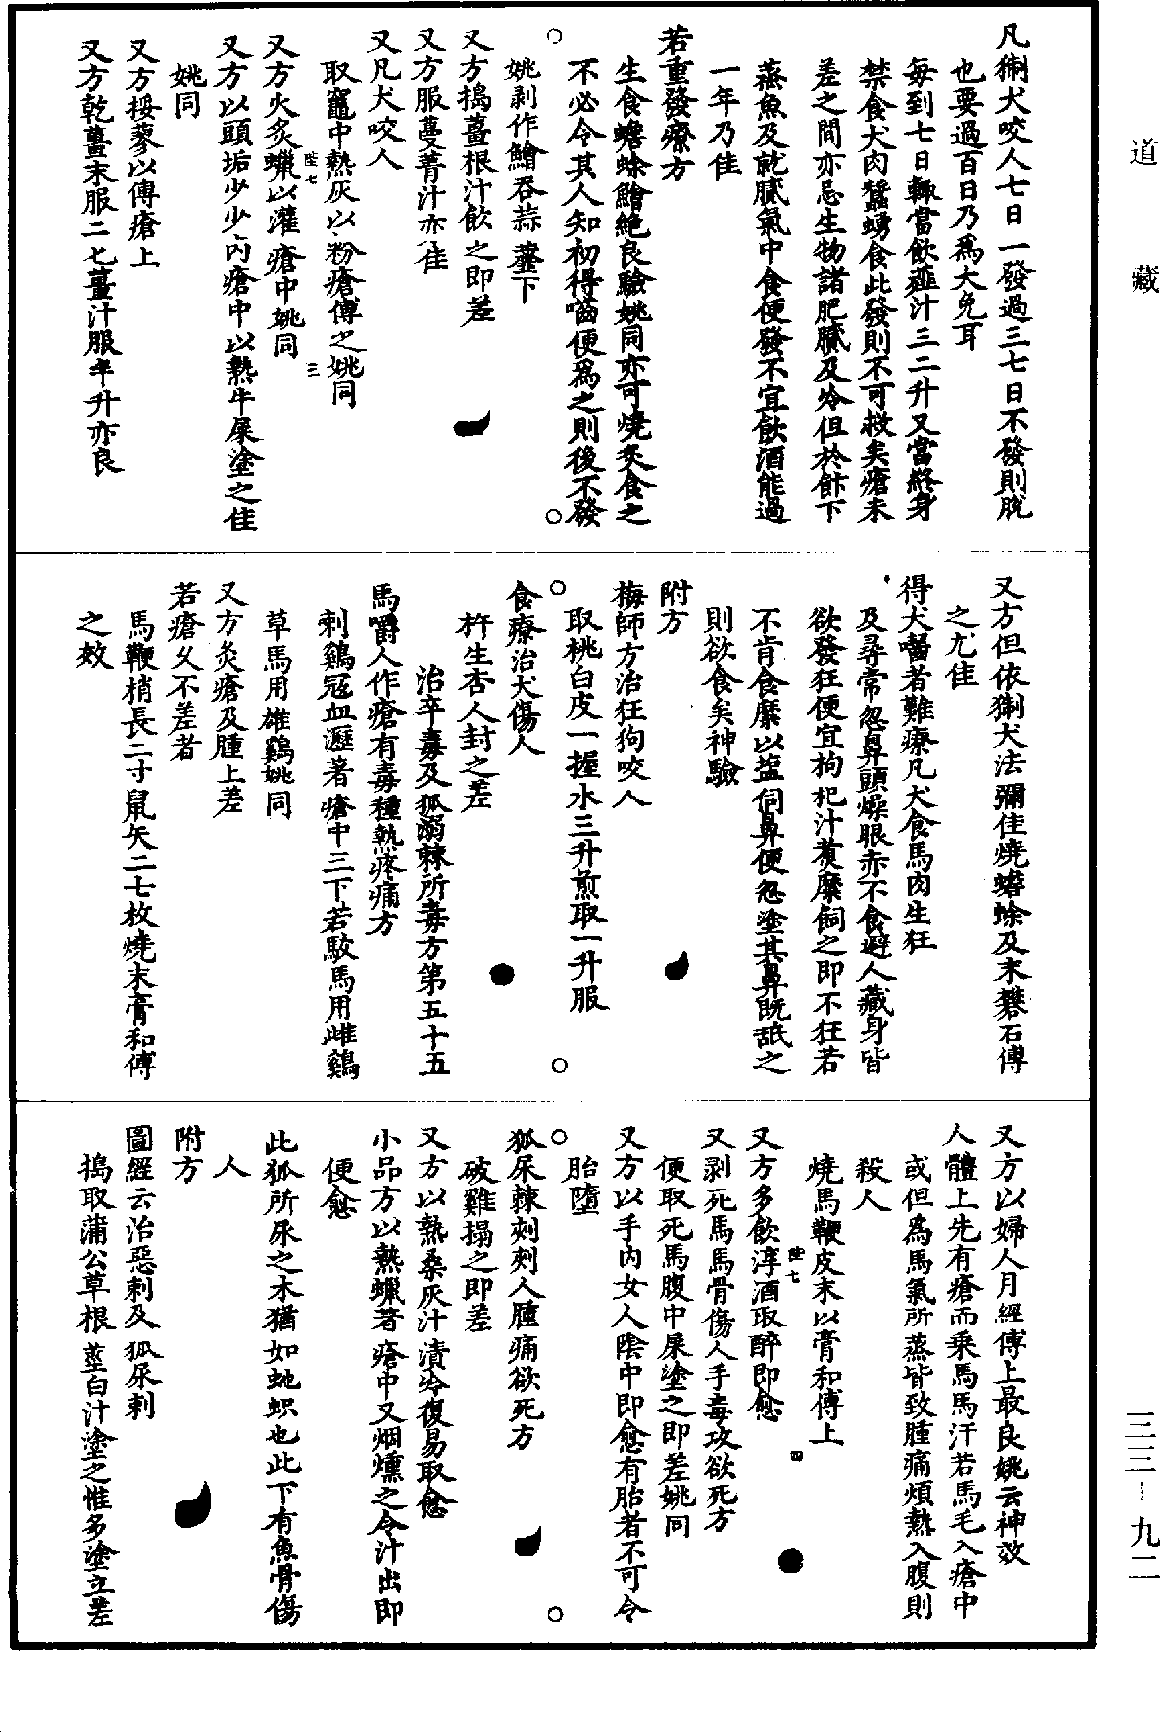 道藏
凡猘犬咬人七日一發過三七日不發則脫
也要過百日乃爲大免耳
每到七日輒當飲薤汁三二升又當終身
禁食犬肉蠶蛹食此發則不可救矣瘡未
差之間亦忌生物諸肥膩及冷但於飰下
蒸魚及就膩氣中食便發不宜飲酒能過
一年乃佳
若重發療方
生食蟾蜍鱠絕良驗姚同亦可燒炙食之
不必令其人知初得嚙便爲之則後不發
姚剥作鱠吞蒜虀下
又方搗薑根汁飲之即差
又方服蔓菁汁亦佳
又凡犬咬人
取竈中熱灰以粉瘡傅之姚同
陞七
三
又方火炙蠟以灌瘡中姚同
又方以頭垢少少内瘡中以熱牛屎塗之佳
姚同
又方挼蓼以傅瘡上
又方乾薑末服二七薑汁服半升亦良
又方但依猘犬法彌佳燒蟾蜍及末礬石傅
之尤佳
得犬嚙者難療凡犬食馬肉生狂
及尋常忽鼻頭燥眼赤不食避人藏身皆
欲發狂便宜枸杞汁煑糜飼之即不狂若
不肯食糜以盐伺鼻便忽塗其鼻既舐之
則欲食矣神驗
附方
梅師方治狂狗咬人
取桃白皮一握水三升煎取一升服
食療治犬傷人
杵生杏人封之差
治卒毒及狐溺棘所毒方第五十五
馬嚼人作瘡有毒種熱疼痛方
刺鷄冠血瀝著瘡中三下若駮馬用雌鷄
草馬用雄鷄姚同
又方灸瘡及腫上差
若瘡久不差者
馬鞭梢長二寸鼠矢二七枚燒末膏和傅
之效
又方以婦人月經傅上最良姚云神效
人體上先有瘡而乘馬馬汗若馬毛入瘡中
或但爲馬氣所蒸皆致腫痛煩熱入腹則
殺人
燒馬鞭皮末以膏和傅上
又方多飲淳酒取醉即愈
陞七
四
又剥死馬馬骨傷人手毒攻欲死方
便取死馬腹中屎塗之即差姚同
又方以手内女人陰中即愈有胎者不可令
胎墮
狐尿棘刺刺人腫痛欲死方
破雞搨之即差
又方以熱桑灰汁漬冷復易取愈
小品方以熱蠟著瘡中又烟燻之令汁出即
便愈
此狐所尿之木猶如虵蜈也此下有魚骨傷
人
附方
圖經云治惡刺及狐尿刺
搗取蒲公草根莖白汁塗之惟多塗立差
三三-九二